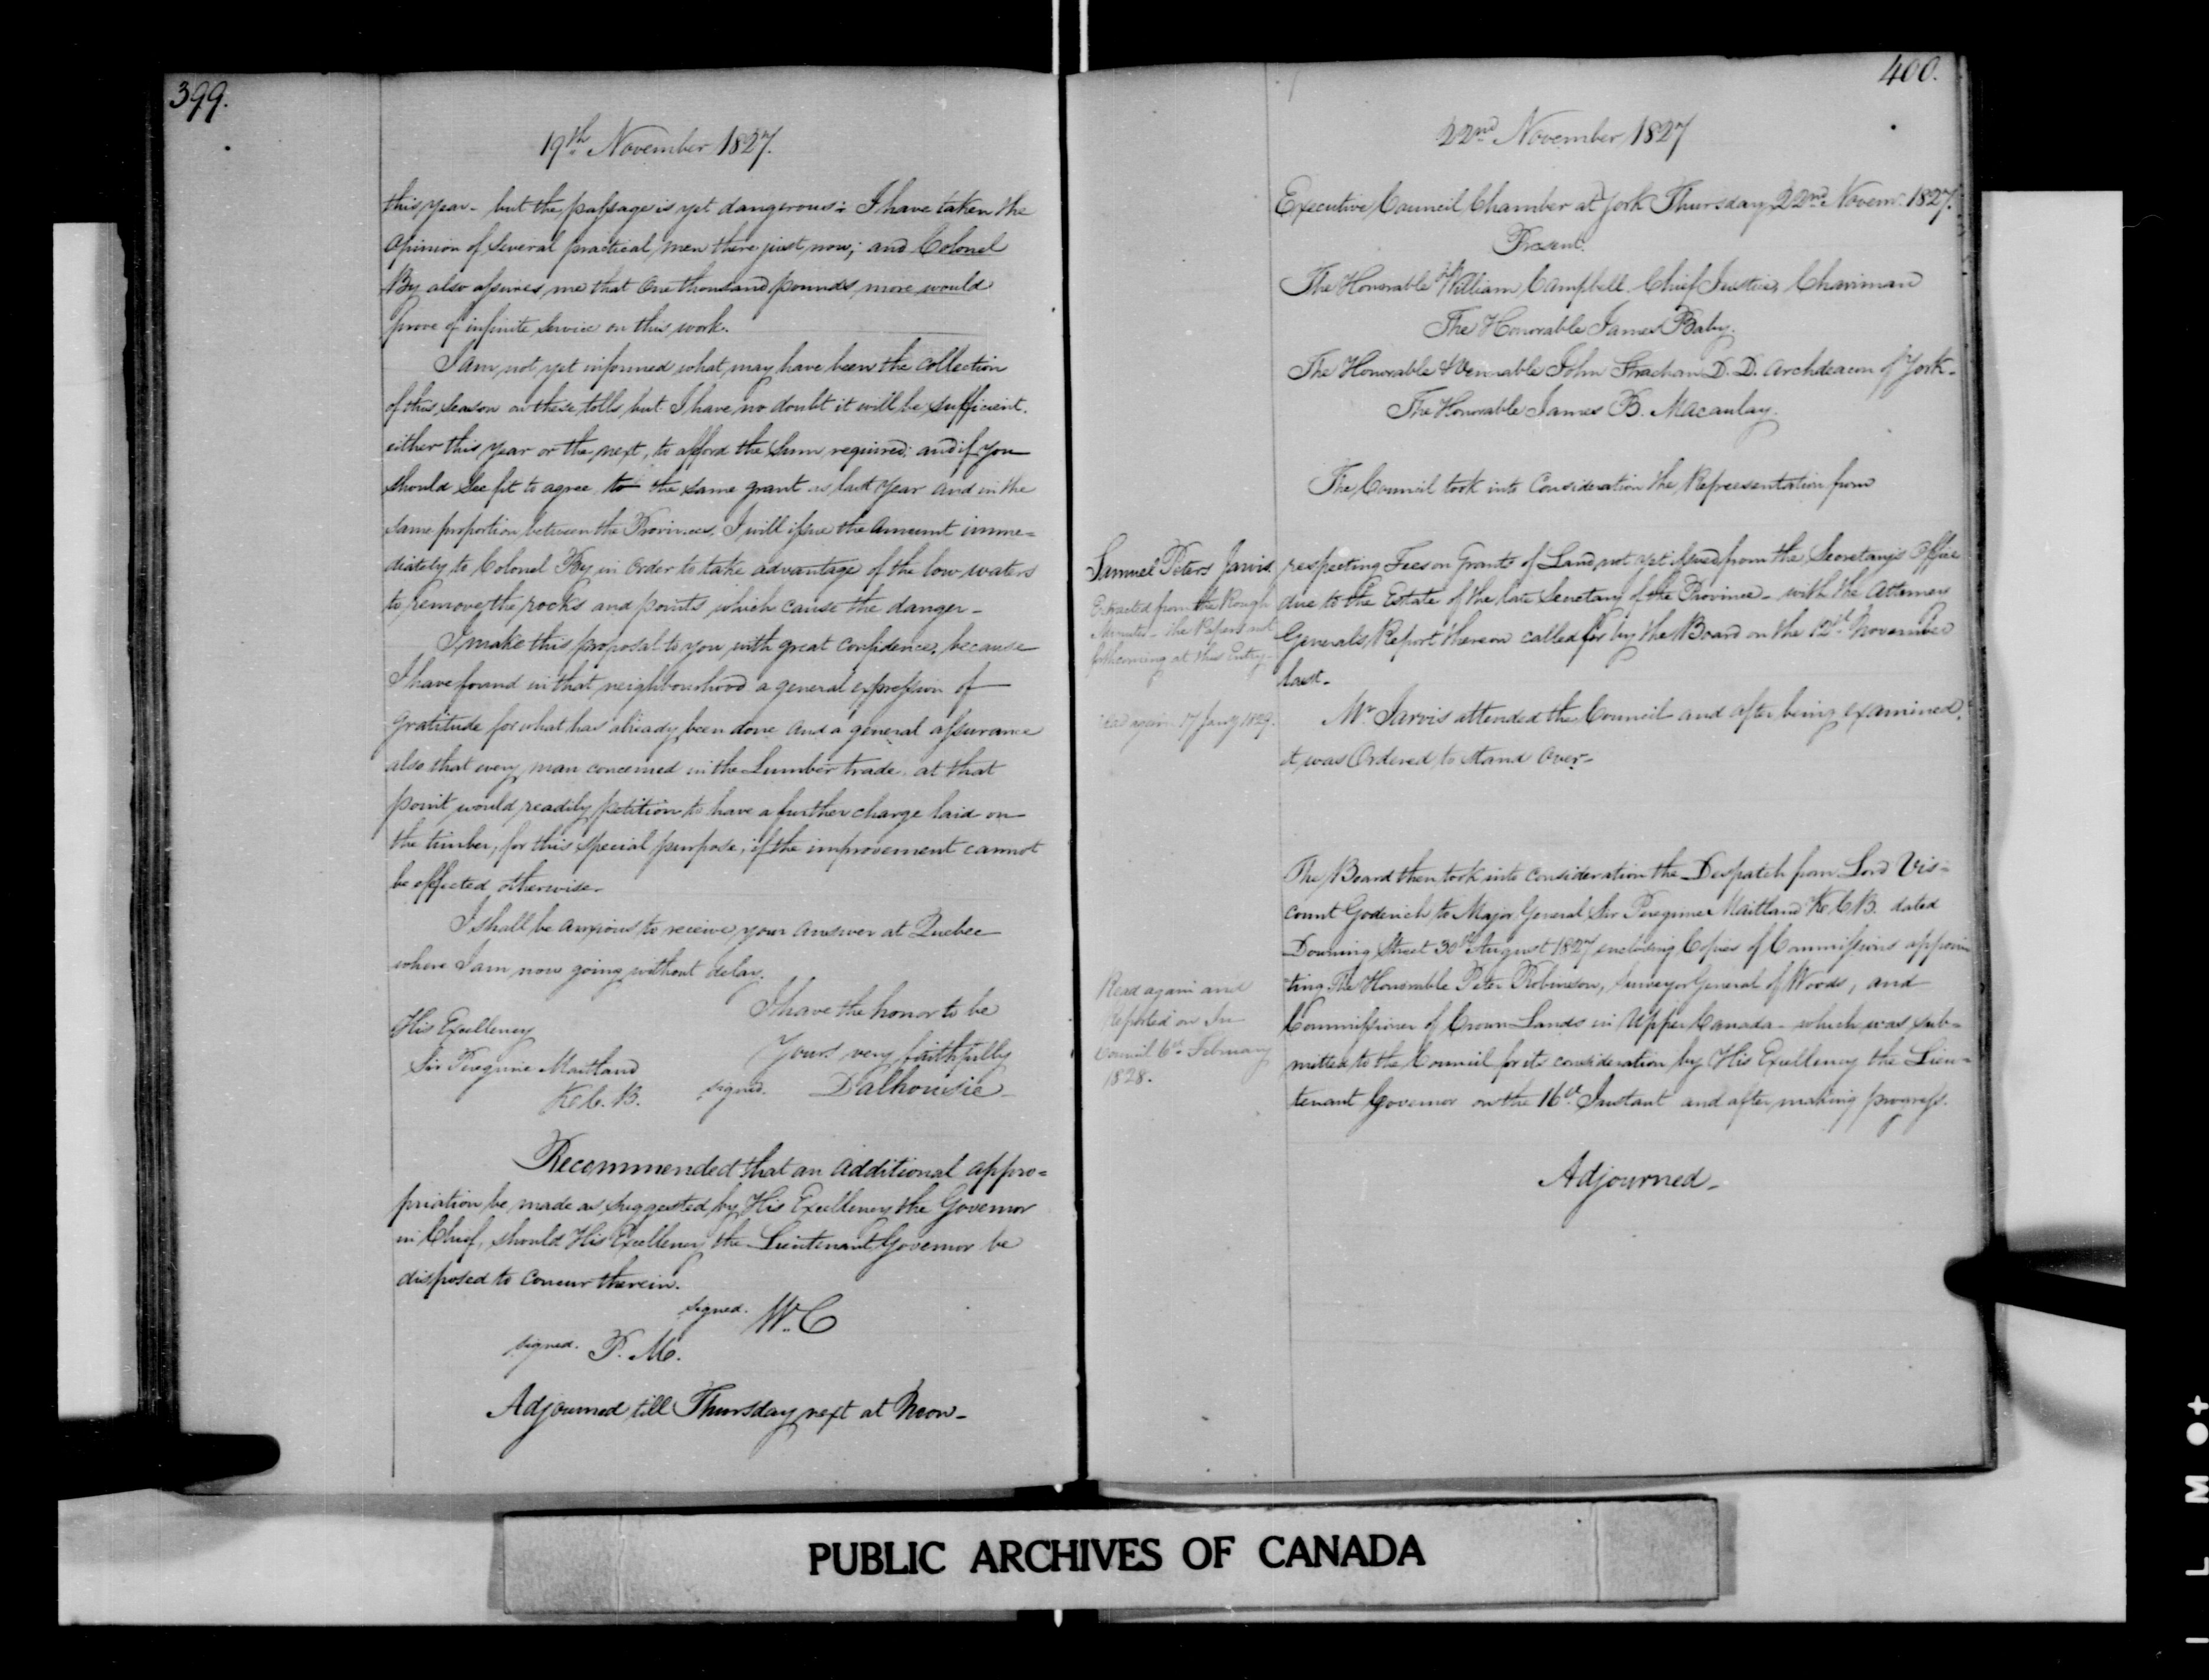 399.
19th November 1827.
this year - but the passage is yet dangerous: I have taken the
opinion of several practical men there just now; and Colonel
By also assures me that One thousand pounds more would
prove of infinite service on this work.
I am not yet informed what may have been the collection
of this season on these tolls, but I have no doubt it will be sufficient.
either this year or the next, to afford the Sum required; and if you
should see fit to agree to the same grant as last year and in the
same proportion between the Provinces, I will issue the amount imme=
diately to Colonel By in order to take advantage of the low waters
to remove the rocks and points which cause the danger -
I make this proposal to you with great confidence, because
I have found in that neighbourhood a general expression of
gratitude for what has already been done and a general assurance
also that every man concerned in the Lumber trade at that
point would readily petition to have a further charge laid on
the timber, for this special purpose, if the improvement cannot
be effected otherwise.
I shall be anxious to receive your answer at Quebec
where I am now going without delay.
I have the honor to be
His Excellency
Yours very faithfully
Sir Peregrine Maitland
K.C.B.
signed. Dalhousie -
Recommended that an additional appro=
priation be made as suggested by His Excellency the Governor
in Chief, should His Excellency the Lieutenant Governor be
disposed to concur therein.
signed. W. C
signed. P. M.
Adjourned till Thursday next at Noon -
400.
22nd November 1827
Executive Council Chamber at York Thursday 22nd Novemr 1827.
Present.
The Honorable William Campbell Chief Justice, Chairman
The Honorable James Baby.
The Honorable & Venerable John Strachan D. D. Archdeacon of York -
The Honorable James B. Macaulay.
The Council took into Consideration the Representation from
Samuel Peters Jarvis respecting Fees on Grants of Land not yet issued from the Secretary's Office
due to the Estate of the late Secretary of the Province - with the Attorney
Generals Report thereon called for by the Board on the 12th November
last -
Extracted from the Rough
Minutes - the Papers not
forthcoming at this Entry -
read again 17 Jany 1829.
Mr Jarvis attended the Council and after being examined,
it was Ordered to stand over -
The Board then took into consideration the Despatch from Lord Vis=
count Goderich to Major General Sir Peregrine Maitland K.C.B. dated
Downing Street 30th August 1827 enclosing Copies of Commissions appoin
ting The Honorable Peter Robinson, Surveyor General of Woods, and
Commissioner of Crown Lands in Upper Canada - which was sub=
mitted to the Council for its consideration by His Excellency the Lieu=
tenant Governor on the 16th Instant and after making progress.
Read again and
Reported on In
Council 6th February
1828.
Adjourned -
PUBLIC ARCHIVES OF CANADA